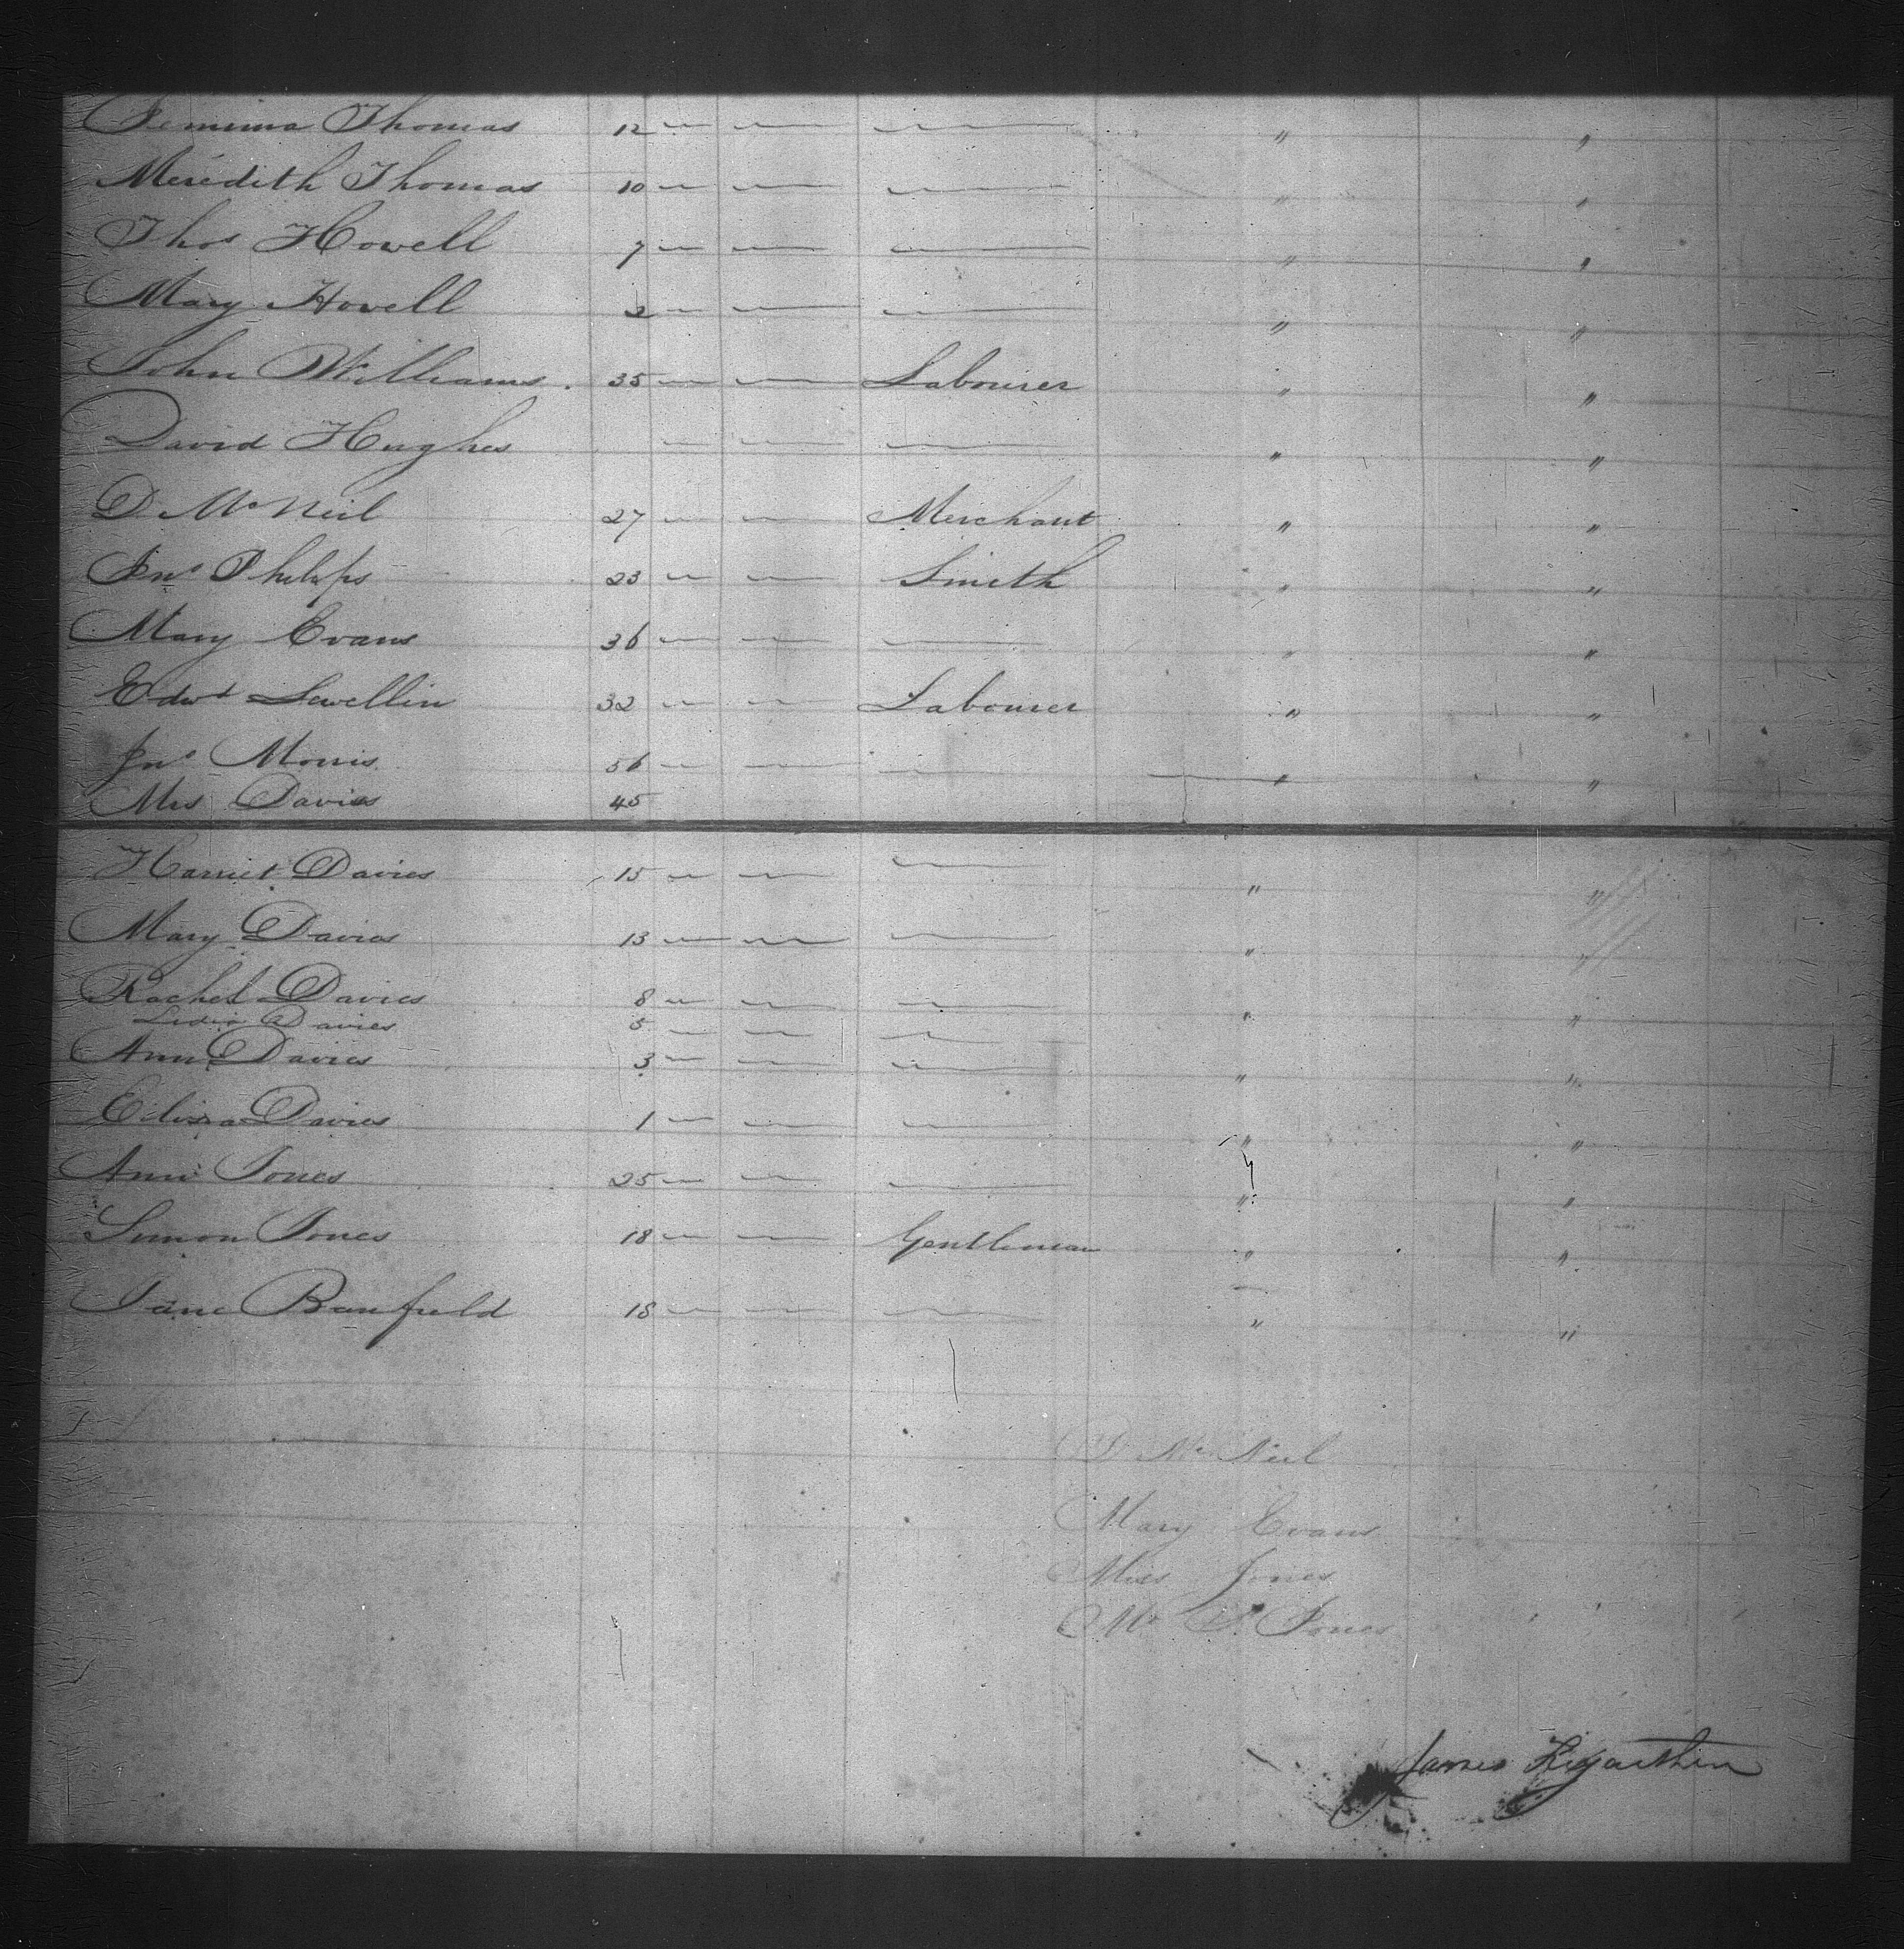 Jemima Thomas 12 " "
Meredith Thomas 10 " "
Thos Howell 7 " "
Mary Howell 2 " "
John Williams 35 Labourer " "
David Hughes " "
D. McNeil 27 Merchant " "
Jno Philips 23 Smith " "
Mary Evans 36 " "
Edwd Lewellin 32 Labourer " "
Jno Morris 56 " "
Mrs Davies 45
Harriet Davies 15 " "
Mary Davies 13 " "
Rachel Davies 8 " "
Lidia Davies 5
Ann Davies 3 " "
Eliza Davies 1 " "
Ann Jones 25 " "
Simon Jones 18 Gentleman " "
Jane Banfield 18 " "
D McNeil
Mary Evans
Miss Jones
Mr S. Jones
James